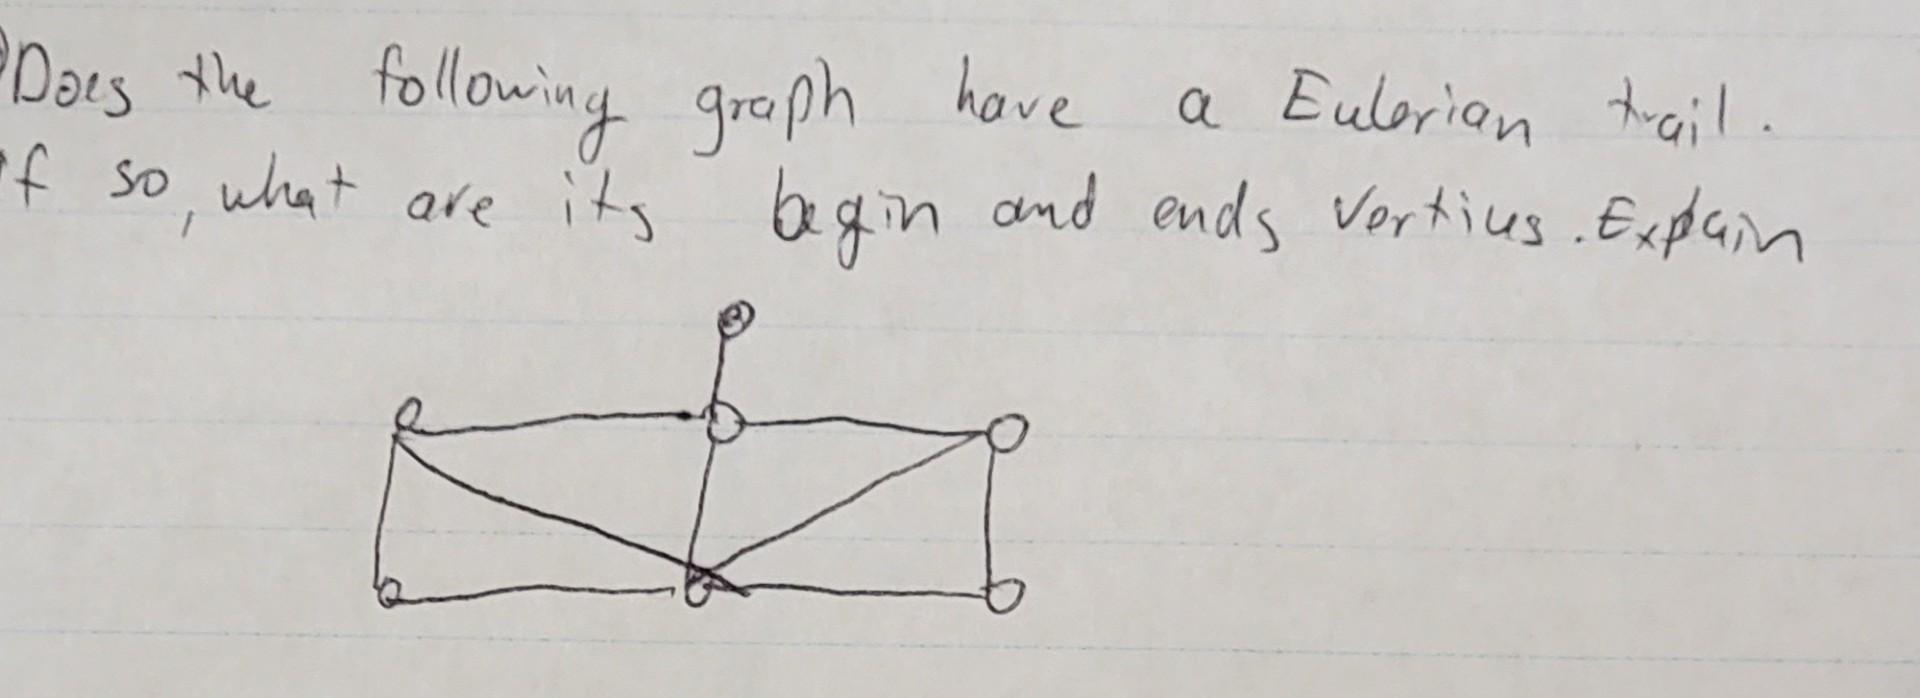 Does the following graph have a Eulerian trail.
If so, what are its begin and ends vertius. Explain